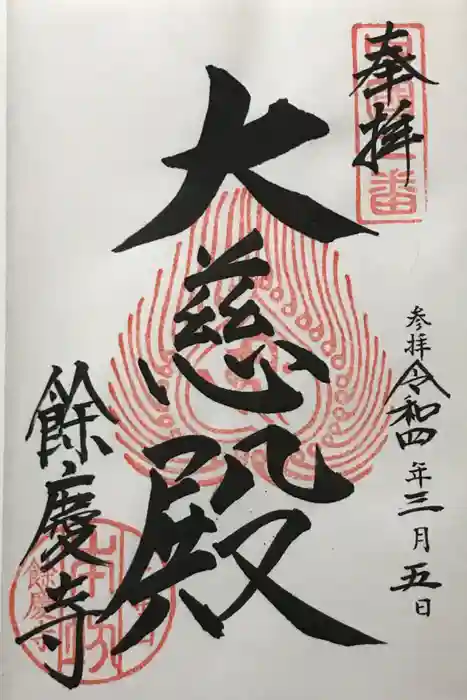 奉拝
参拝令和四年三月五日
大慈殿
餘慶寺
餘慶寺